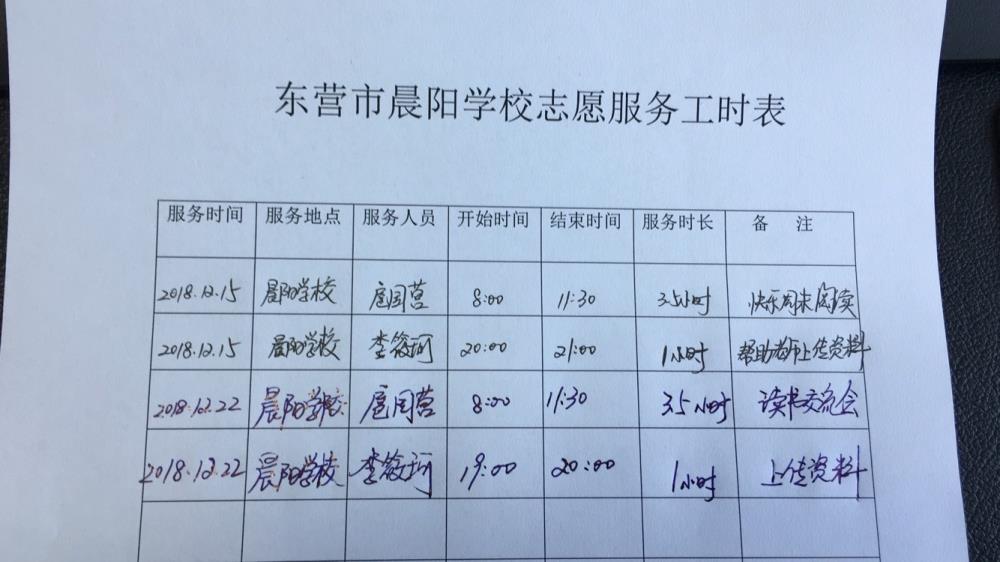 东营市晨阳学校志愿服务工时表
服务时间 服务地点 服务人员 开始时间 结束时间 服务时长 备 注
2018.12.15 晨阳学校 扈国营 8:00 11:30 3.5小时 快乐周末阅读
2018.12.15 晨阳学校 李筱珂 20:00 21:00 1小时 帮助老师上传资料
2018.12.22 晨阳学校 扈国营 8:00 11:30 3.5小时 读书交流会
2018.12.22 晨阳学校 李筱珂 19:00 20:00 1小时 上传资料